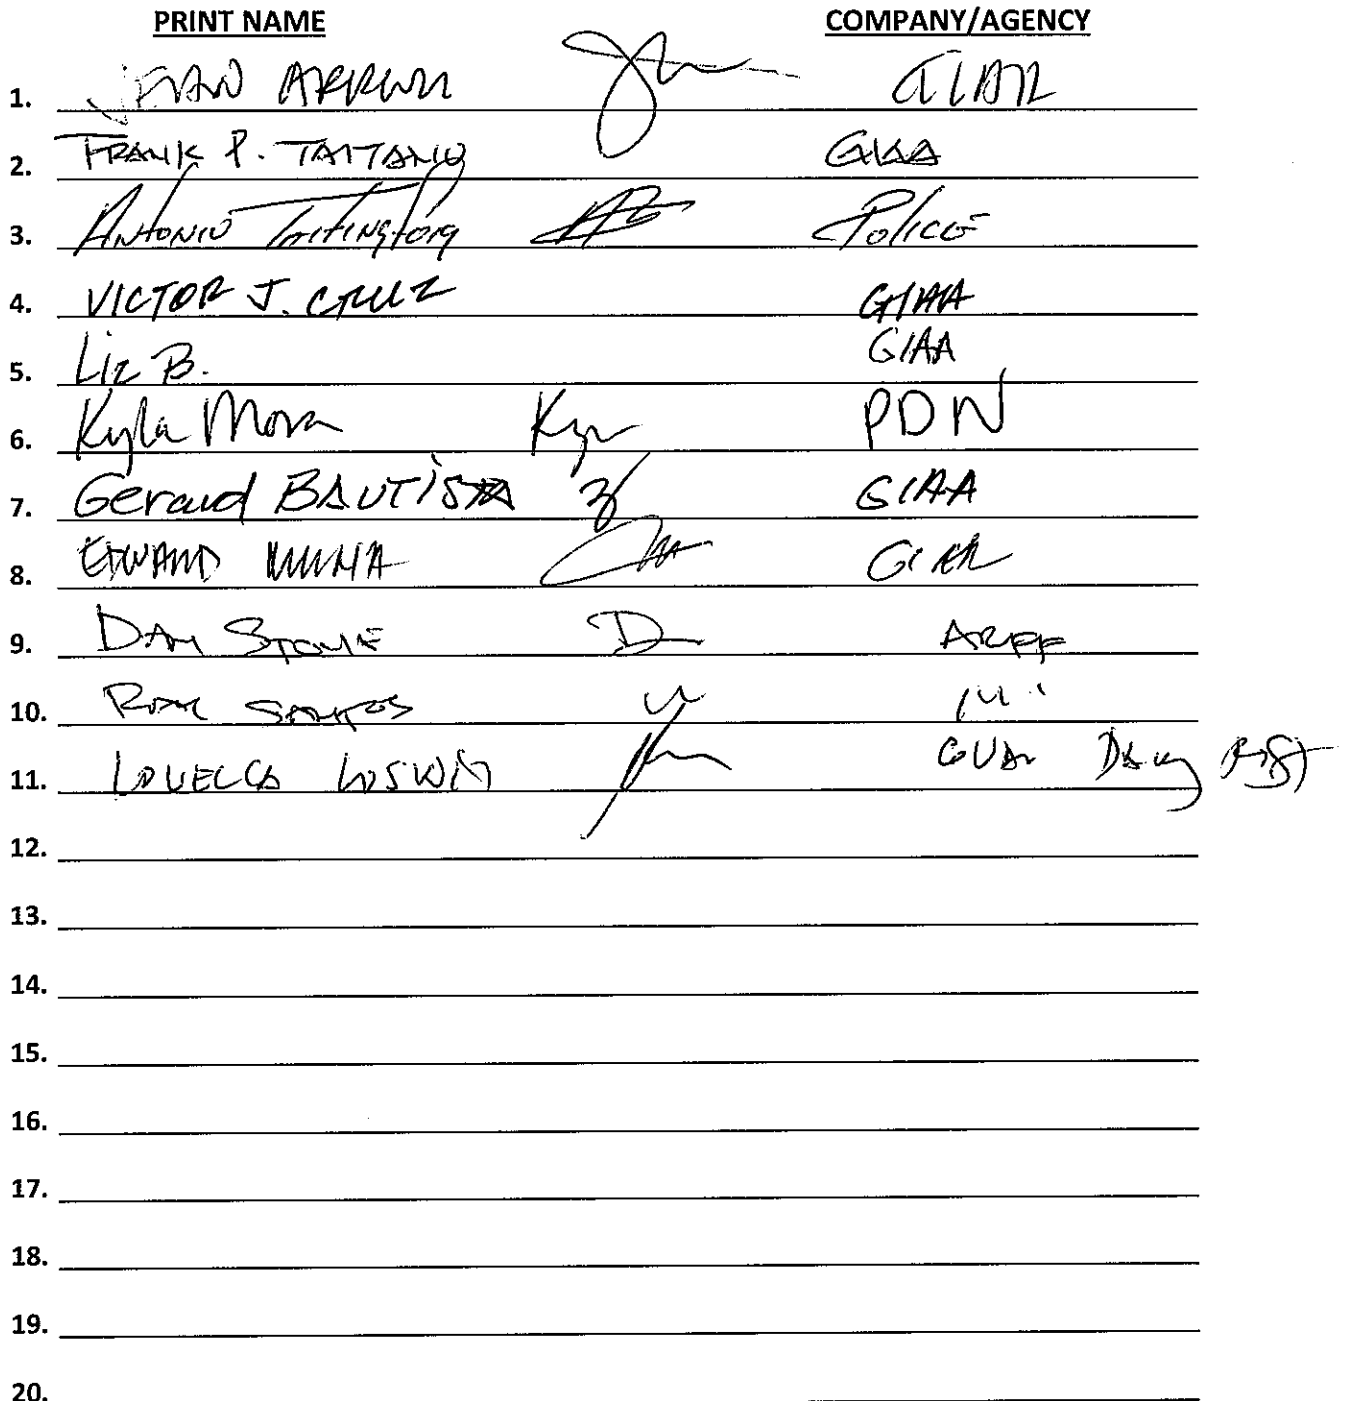 PRINT NAME COMPANY/AGENCY
1. JEAN ARRIOLA GIAA
2. FRANK P. TAITANO GIAA
3. ANTONIO Taitingfong Police
4. VICTOR J. CRUZ GIAA
5. Liz B. GIAA
6. Kyla Mora PDN
7. Geraud BAUTISTA GIAA
8. EDWARD MUNA GIAA
9. DAN STONE ARFF
10. SANTOS
11. LOUELLA LOSINIO GUAM DAILY POST
12.
13.
14.
15.
16.
17.
18.
19.
20.